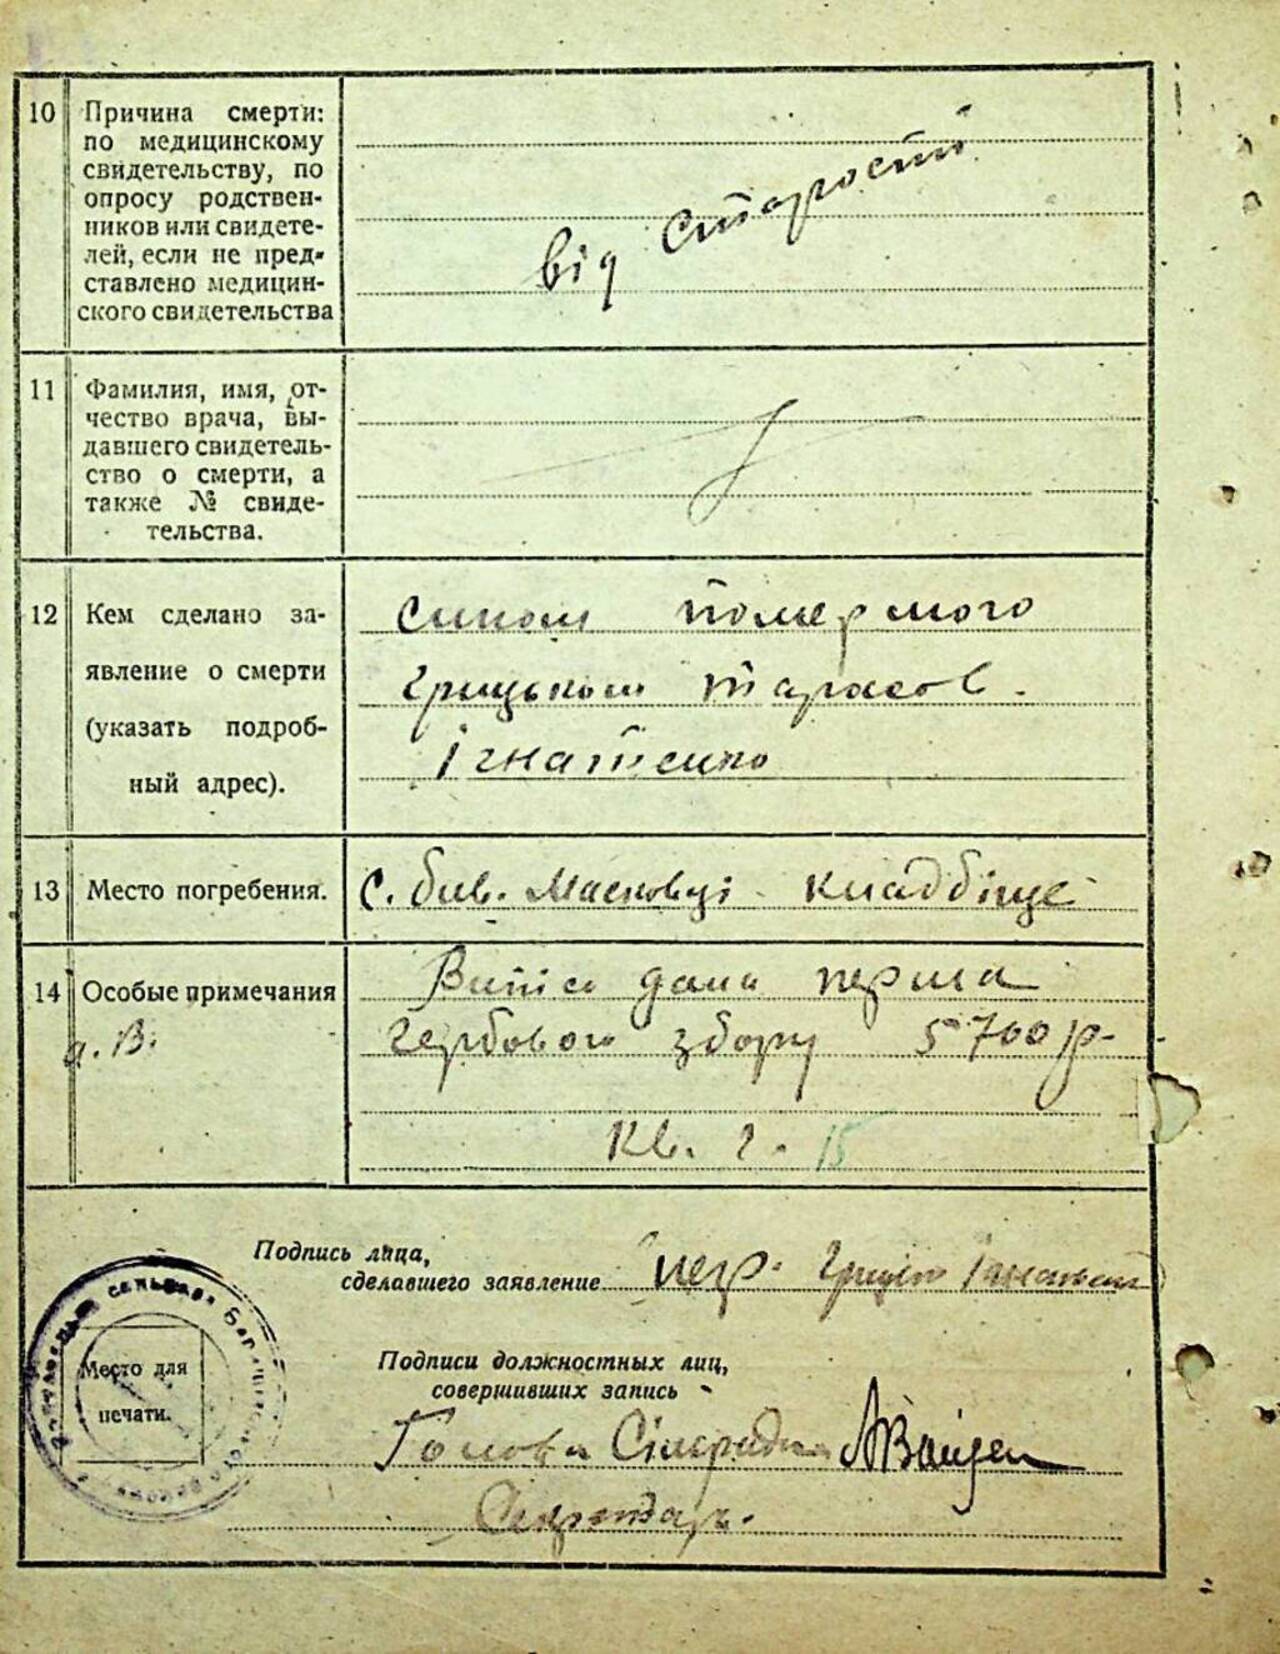 10
Причина смерти:
по медицинскому
свидетельству, по
опросу родствен-
ников или свидете-
лей, если не пред-
ставлено медицин-
ского свидетельства
від старости
11
Фамилия, имя, от-
чество врача, вы-
давшего свидетель-
ство о смерти, а
также № свиде-
тельства.
12
Кем сделано за-
явление о смерти
(указать подроб-
ный адрес).
Сином померлого
Грицьком Тарасов.
Ігнатенко
13
Место погребения.
с. бив. кладбіще
14
Особые примечания
а. В.
дана перша
гербового збору 5700 р-
Кв. 2. 15
Подпись лица,
сделавшего заявление
Грицко
Подписи должностных лиц,
совершивших запись
Голова Сільради
Секретарь.
Место для
печати.